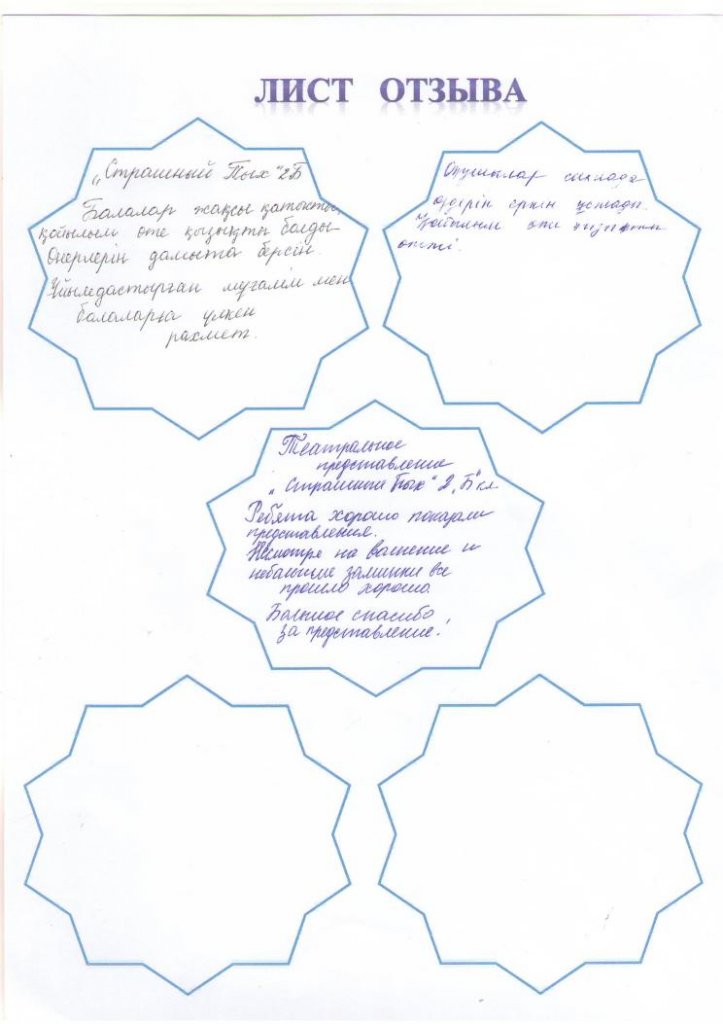 ЛИСТ ОТЗЫВА
„Страшный Пых" 2Б
Балалар жақсы қатысты,
қойылым өте қызықты болды
Өнерлерін дамыта берсін.
Ұйымдастырған мұғалім мен
балаларға үлкен
рахмет.
Оқушылар сахнада
өздерін еркін ұстады.
Қойылым өте
өтті.
Театральное
представление
„Страшный Пых" 2 „Б" кл
Ребята хорошо показали
представления.
Несмотре на валнение и
небальшие заминки все
прошло хорошо.
Большое спасибо,
за представление.